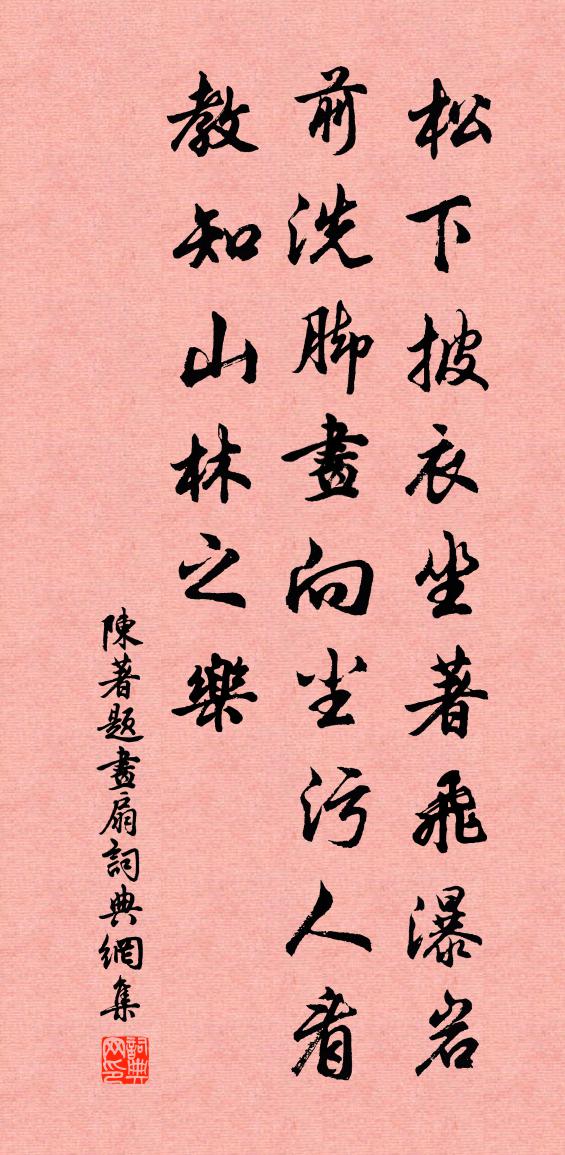 松下披衣坐著飛瀑岩
前洗脚畫向尘污人看
教知山林之樂
陳著題畫扇詞典網集
詞典网印